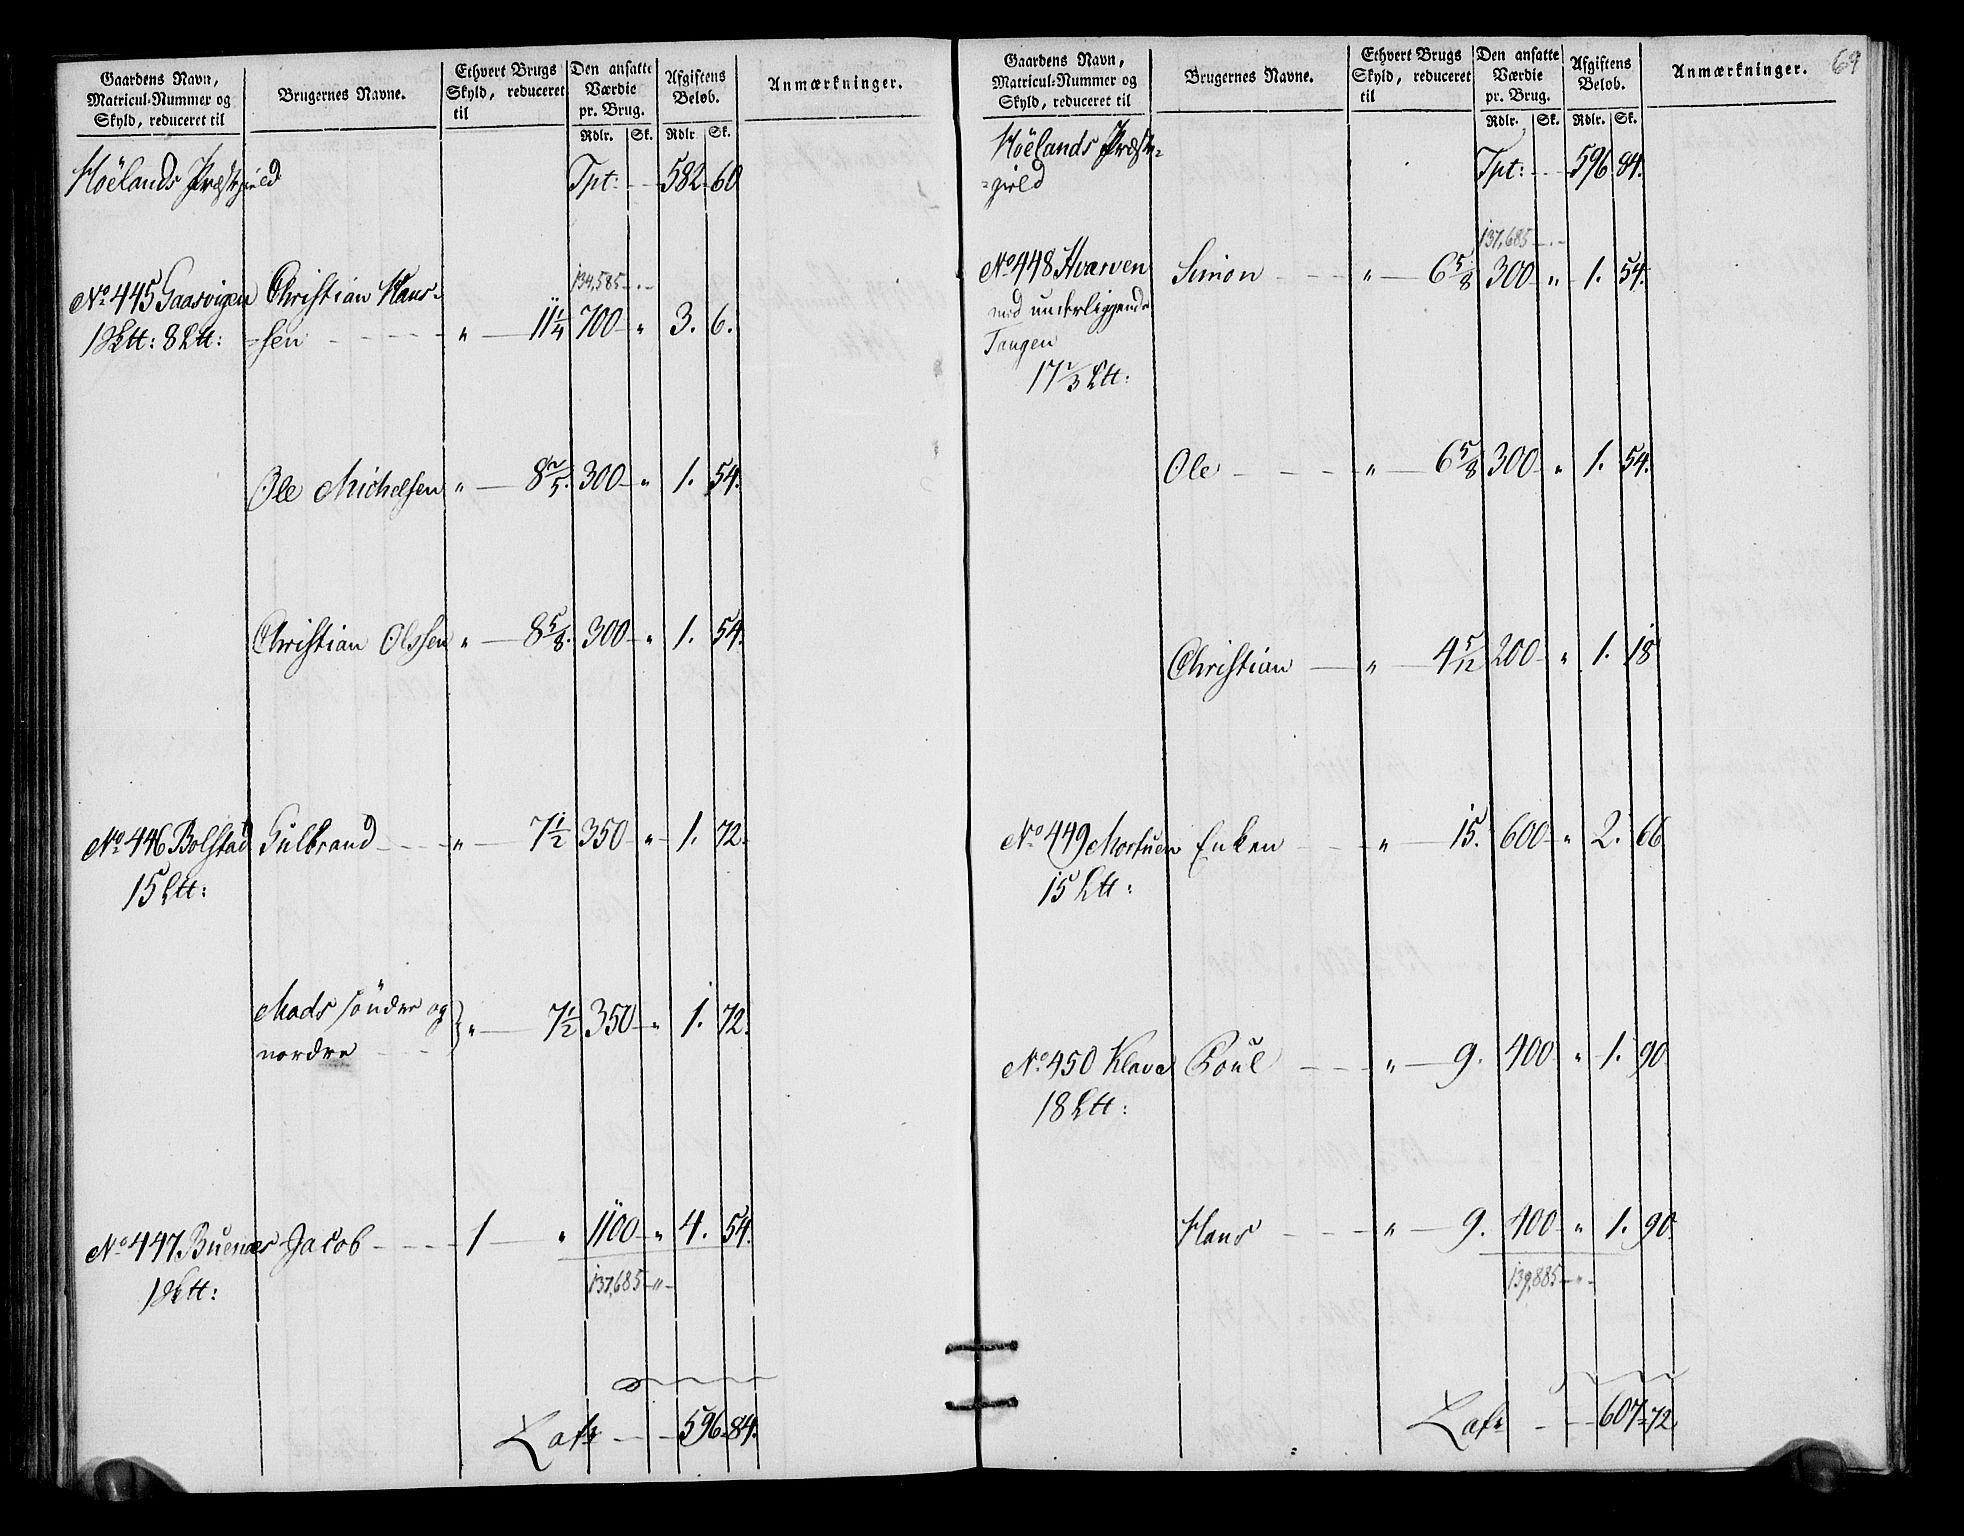 Gaardens Navn, Matricul-Nummer og Skyld, reduceret til | Brugernes Navne. | Ethvert Brugs Skyld, reduceret til | Den ansatte Værdie pr. Brug. Rdlr. Sk. | Afgiftens Beløb. Rdlr. Sk. | Anmærkninger.
Höelands Præstegield Tpt: 582 60
134,585
No 445 Gaasvigen Christian Hans-
1 Skp: 8 Ltt: =sen " 11 1/4 700 " 3. 6.
Ole Michelsen " 8 2/5. 300 " 1. 54.
Christian Olssen " 8 5/8. 300 " 1. 54.
No 446 Bolstad Gulbrand " 7 1/2 350 " 1. 72.
15 Ltt:
Mads söndre og
nordre " 7 1/2 350 " 1. 72.
No 447 Buenæs Jacob 1 " 1100 " 4. 54.
137,685 "
Lats 596 84.
Gaardens Navn, Matricul-Nummer og Skyld, reduceret til | Brugernes Navne. | Ethvert Brugs Skyld, reduceret til | Den ansatte Værdie pr. Brug. Rdlr. Sk. | Afgiftens Beløb. Rdlr. Sk. | Anmærkninger.
69
Höelands Præste=
=gield Tpt: 596 84.
137,685
No 448 Hvarven Simon " 6 5/8 300 " 1. 54.
med underliggende
Tangen
17 2/3 Ltt:
Ole " 6 5/8 300 " 1. 54.
Christian " 4 5/12 200 " 1. 18
No 449 Mortuen Enken " 15. 600 " 2. 66
15 Ltt:
No 450 Klava Poul " 9. 400 " 1. 90
18 Ltt:
Hans " 9. 400 " 1. 90.
139,885 "
Lats 607 72